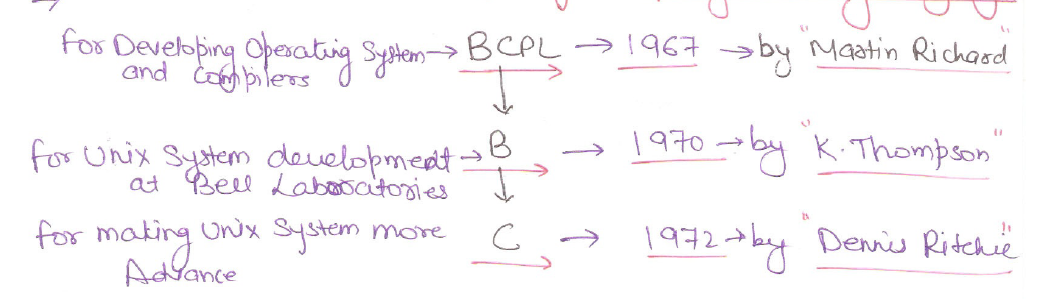 for Developing Operating System → BCPL → 1967 → by "Martin Richard"
and Compilers
↓
for Unix System development → B → 1970 → by "K. Thompson"
at Bell Laboratories
↓
for making Unix System more C → 1972 → by "Dennis Ritchie"
Advance